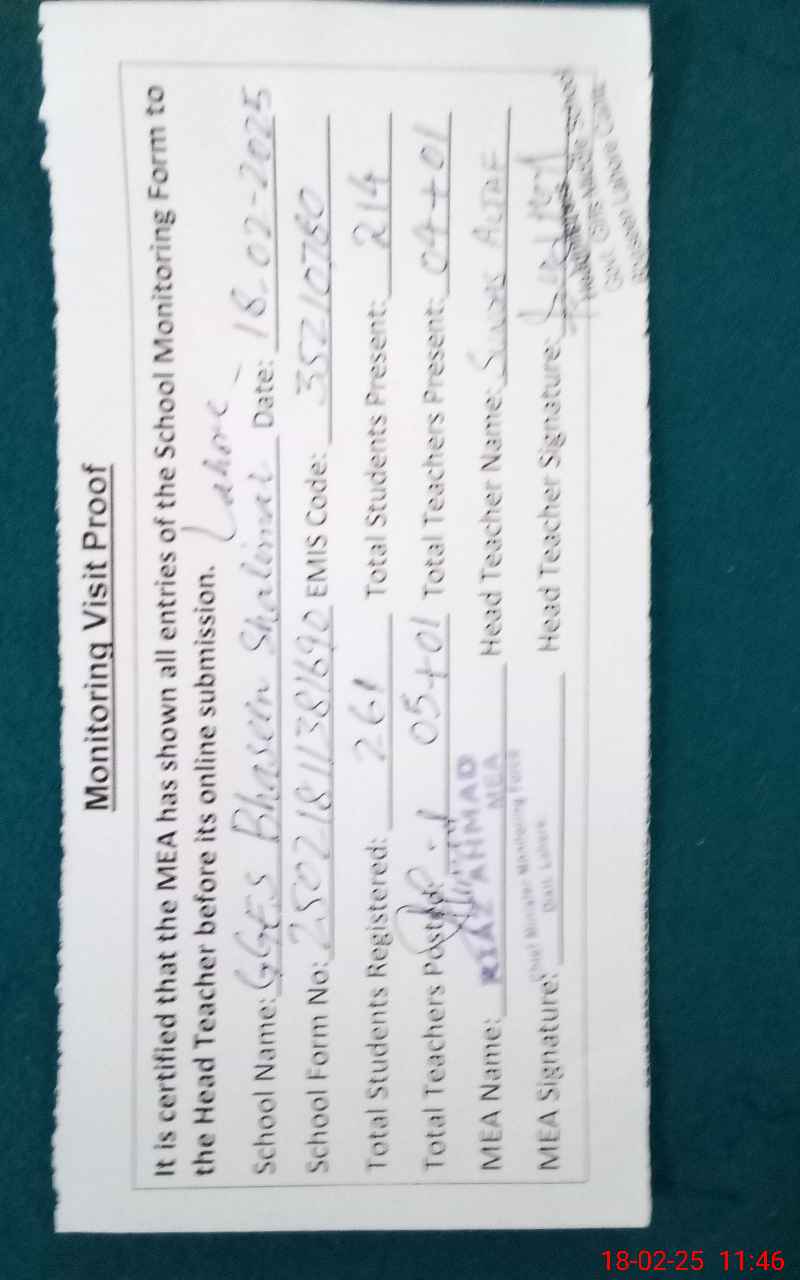 Monitoring Visit Proof
It is certified that the MEA has shown all entries of the School Monitoring Form to
the Head Teacher before its online submission. Lahore
School Name: GGES Bhaseen Shalimar Date: 18-02-2025
School Form No: 250218113811690 EMIS Code: 35210760
Total Students Registered: 261 Total Students Present: 214
Total Teachers Posted: 05+01 Total Teachers Present: 04+01
MEA Name: RIAZ AHMAD Head Teacher Name: ALTAF
MEA
MEA Signature: Chief Minister Monitoring Force Head Teacher Signature:
Distt. Lahore
Govt. Girls Middle School
Bhaseen Lahore Cantt
18-02-25 11:46